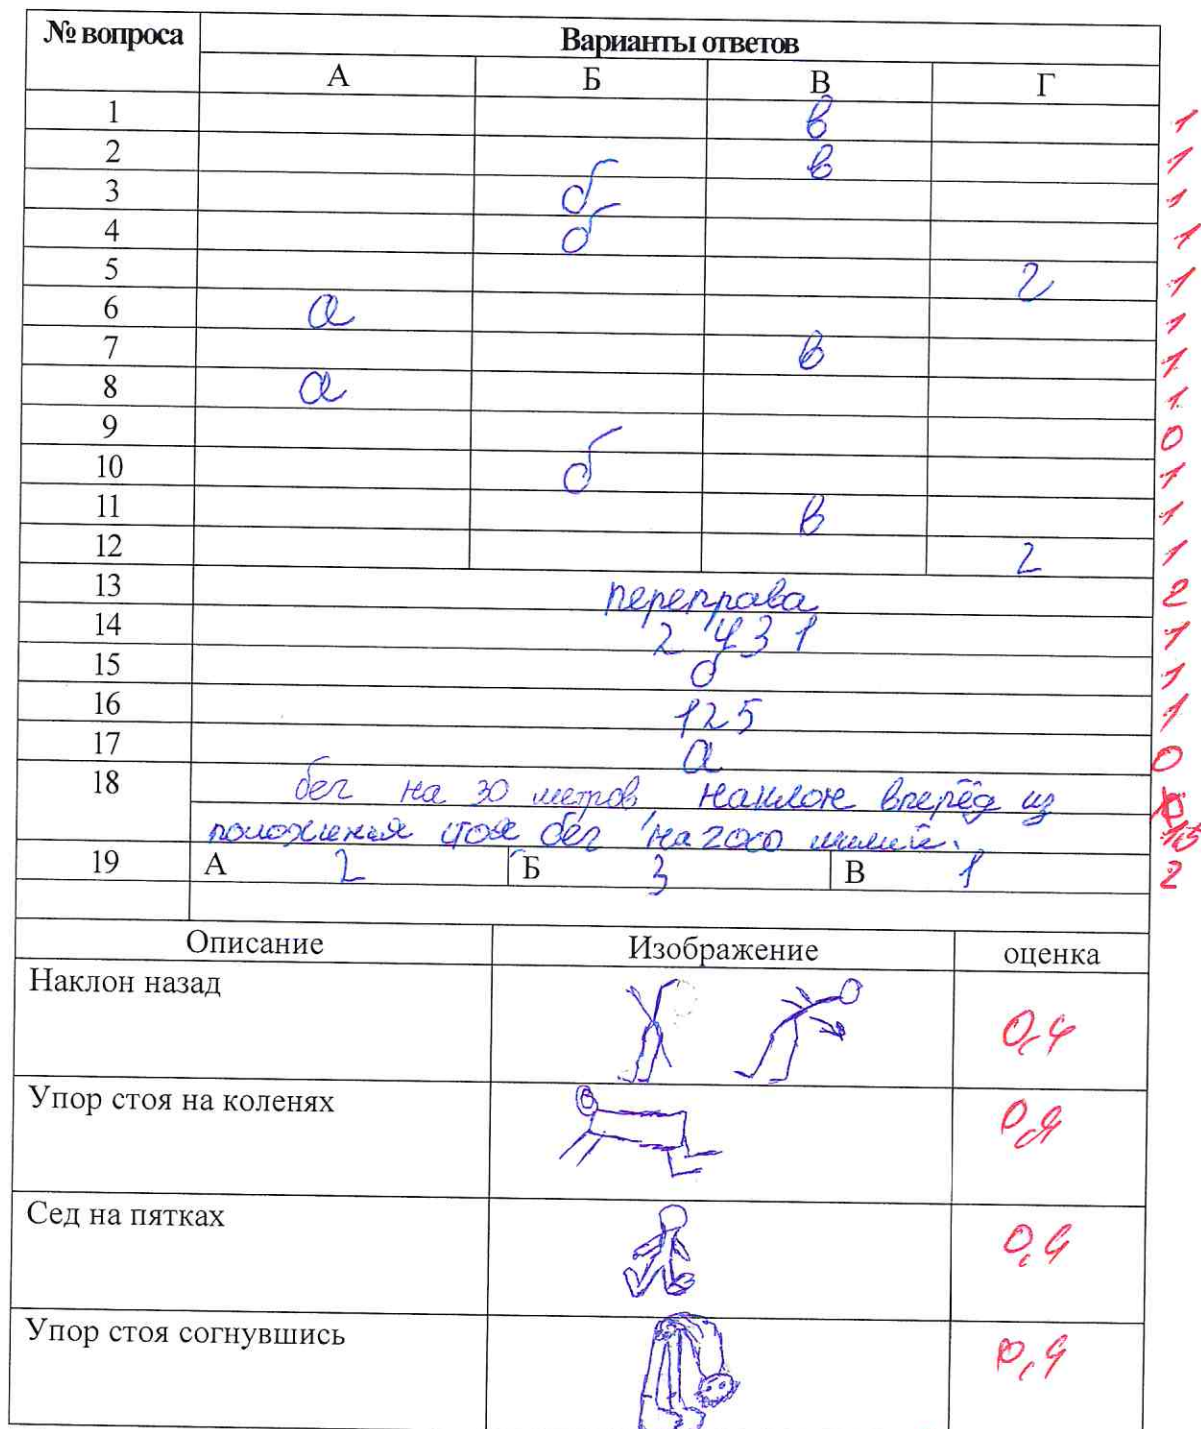 № вопроса Варианты ответов
А Б В Г
1 в 1
2 в 1
3 б 1
4 б 1
5 г 1
6 а 1
7 в 1
8 а 1
9 0
10 б 1
11 в 1
12 г 1
13 переправа 2
14 2 4 3 1 1
15 б 1
16 125 1
17 а 0
18 бег на 30 метров, наклон вперёд из
положения стоя бег на 2000
19 А 2 Б 3 В 1 2
Описание Изображение оценка
Наклон назад 0,4
Упор стоя на коленях
Сед на пятках
Упор стоя согнувшись